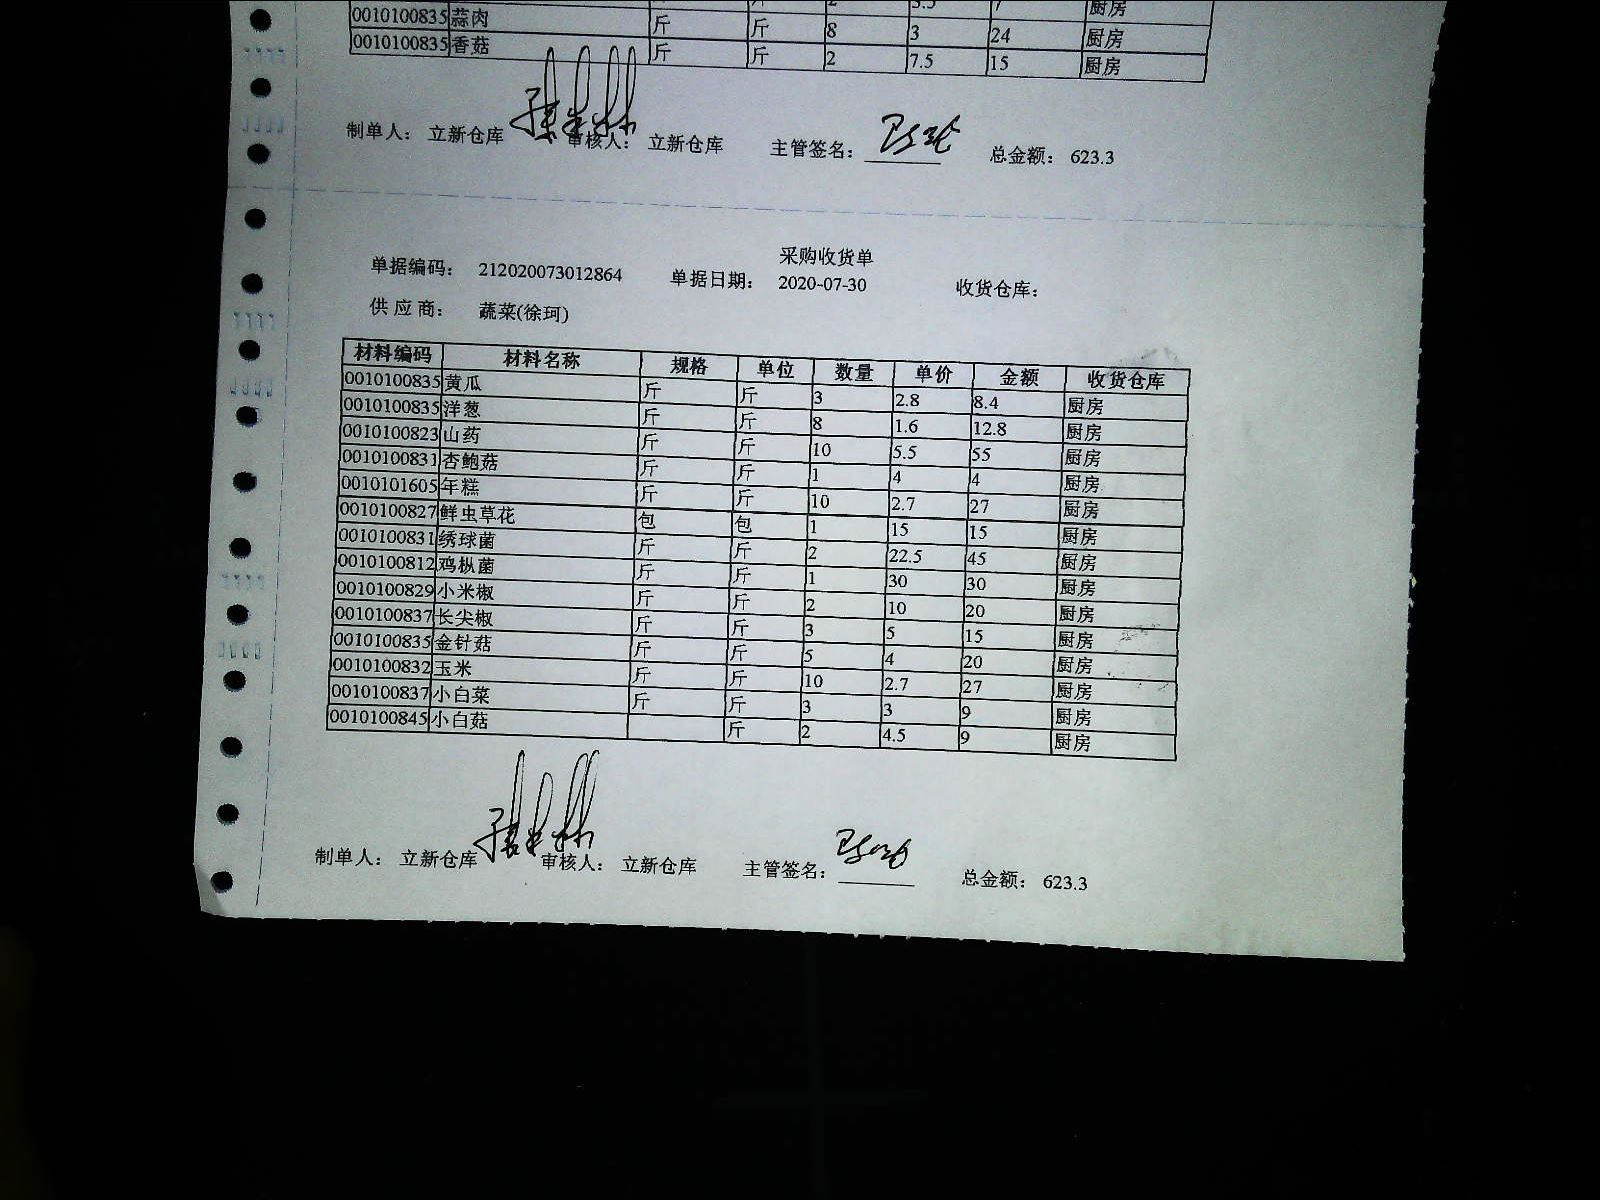 2 3.5 7 厨房
0010100835 蒜肉 斤 斤 8 3 24 厨房
0010100835 香菇 斤 斤 2 7.5 15 厨房
制单人： 立新仓库 审核人： 立新仓库 主管签名： 总金额： 623.3
采购收货单
单据编码： 212020073012864 单据日期： 2020-07-30 收货仓库：
供应商： 蔬菜(徐珂)
材料编码 材料名称 规格 单位 数量 单价 金额 收货仓库
0010100835 黄瓜 斤 斤 3 2.8 8.4 厨房
0010100835 洋葱 斤 斤 8 1.6 12.8 厨房
0010100823 山药 斤 斤 10 5.5 55 厨房
0010100831 杏鲍菇 斤 斤 1 4 4 厨房
0010101605 年糕 斤 斤 10 2.7 27 厨房
0010100827 鲜虫草花 包 包 1 15 15 厨房
0010100831 绣球菌 斤 斤 2 22.5 45 厨房
0010100812 鸡枞菌 斤 斤 1 30 30 厨房
0010100829 小米椒 斤 斤 2 10 20 厨房
0010100837 长尖椒 斤 斤 3 5 15 厨房
0010100835 金针菇 斤 斤 5 4 20 厨房
0010100832 玉米 斤 斤 10 2.7 27 厨房
0010100837 小白菜 斤 斤 3 3 9 厨房
0010100845 小白菇 斤 2 4.5 9 厨房
制单人： 立新仓库 审核人： 立新仓库 主管签名： 总金额： 623.3